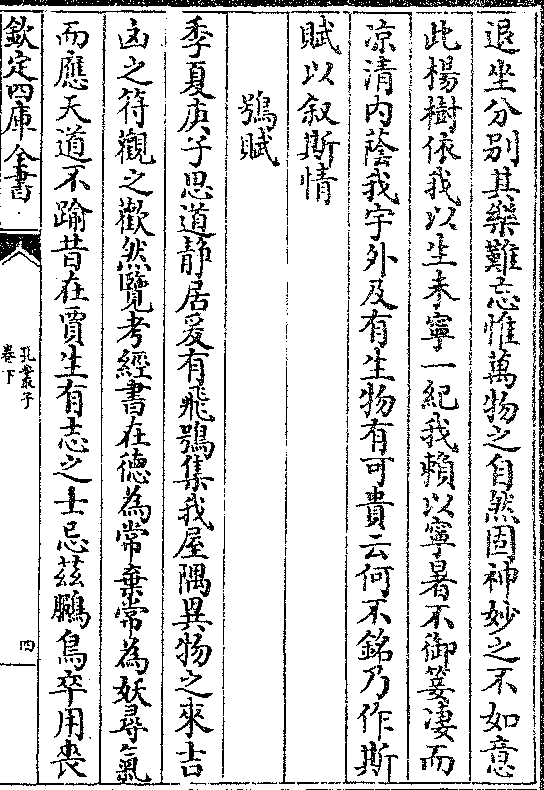 退坐分别其樂難忘惟萬物之自然固神妙之不如意
此楊樹依我以生未寧一紀我賴以寧暑不御箑凄而
凉清内蔭我宇外及有生物有可貴云何不銘乃作斯
賦以叙斯情
鴞賦
季夏庚子思道静居爰有飛鴞集我屋隅異物之來吉
凶之符觀之歡然覽考經書在德為常棄常為妖尋氣
而應天道不踰昔在賈生有志之士忌兹鵩鳥卒用喪
欽定四庫全書
孔叢子
卷下
四